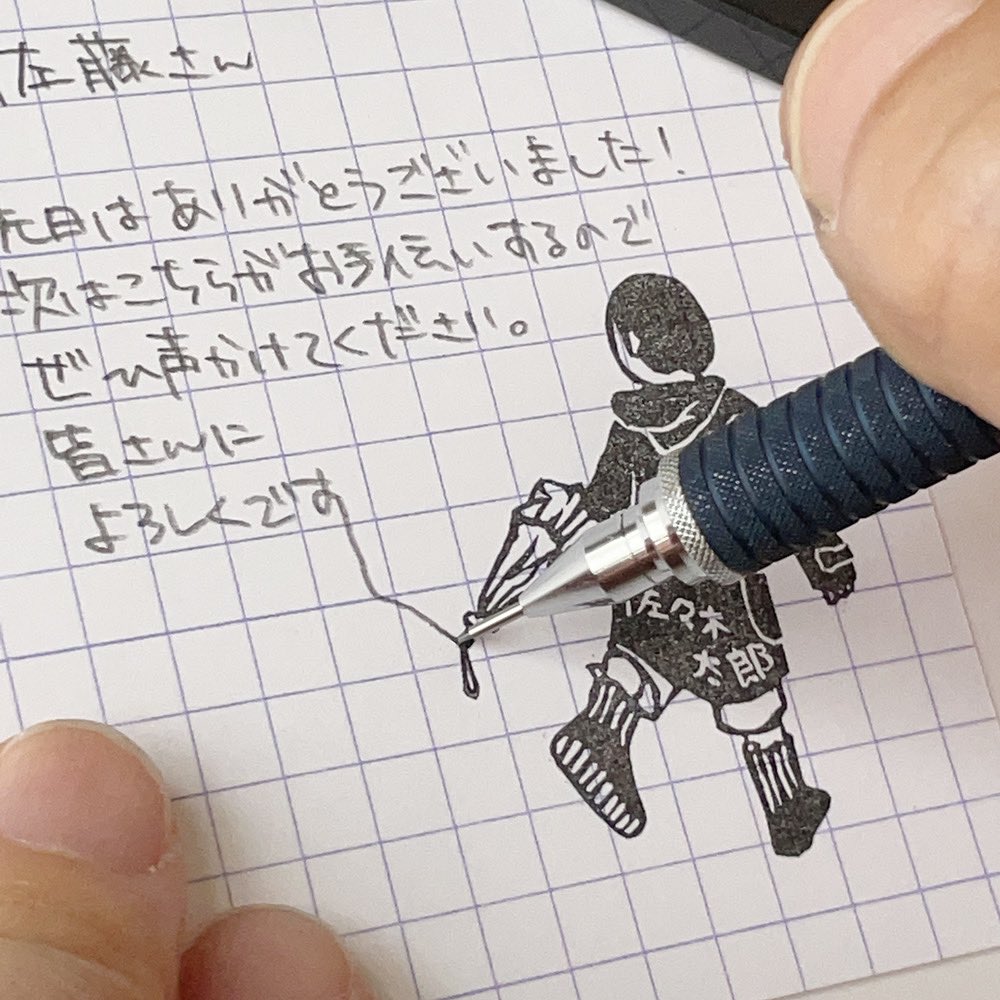 佐藤さん
先日はありがとうございました!
次はこちらがお手伝いするので
ぜひ声かけてください。
皆さんに
よろしくです
佐々木
太郎